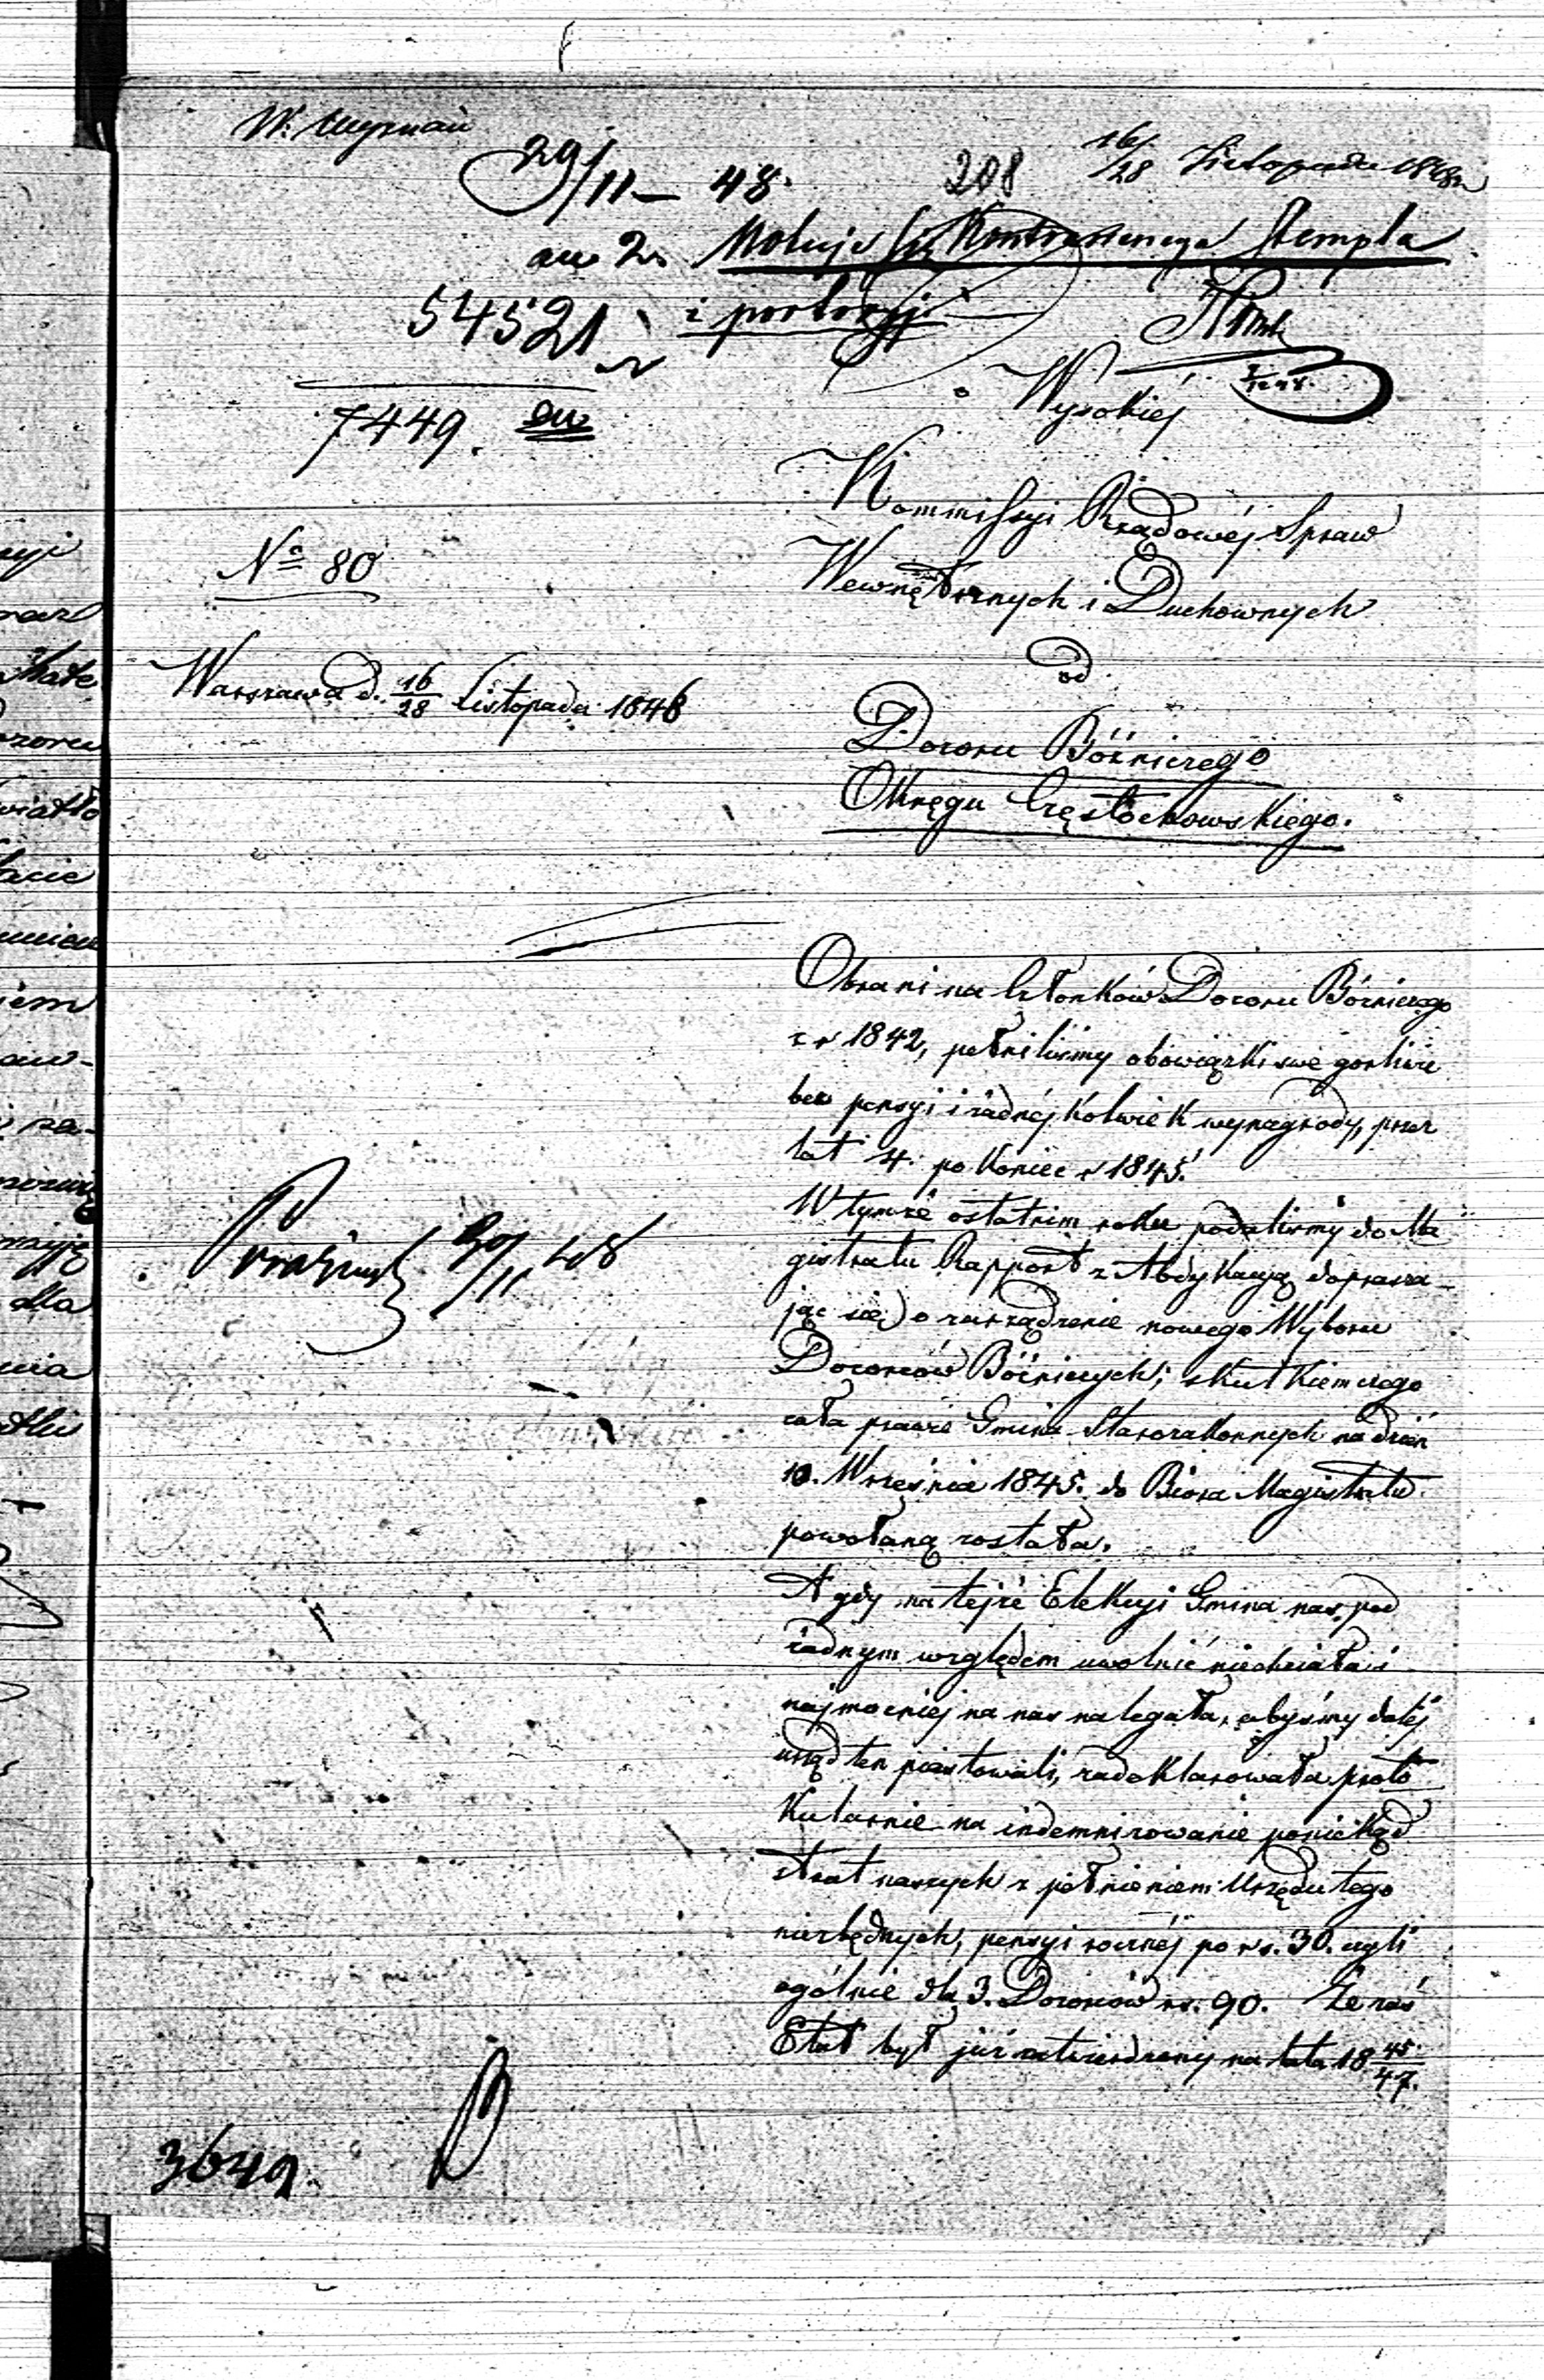 W.
29/11 – 48.
208
16/28 Listopada 1848
Stempla
54521
7449.
Wysokiéj
Kommissyi Rządowéj Spraw
Wewnętrznych i Duchownych
od
Dozoru Bóżniczego
Okręgu Częstochowskiego.
№ 80
Warszawa d. 16/28 Listopada 1848
Obrani na Członków Dozoru Bóżniczego
z r 1842, pełniliśmy obowiązki swe gorliwie
bez pensyi i żadnéj kolwiek wynagrody, przez
lat 4. po koniec r 1845.
W tymże ostatnim roku podaliśmy do Ma
gistratu Rapport z Abdykacyą doprasza-
jąc się o zarządzenie nowego Wyboru
Dozorców Bóżniczych; skutkiem czego
cała prawie Gmina Starozakonnych na dzień
10. Września 1845. do Biora Magistratu
powołaną została.
A gdy na tejże Elekcyi Gmina nas pod
żadnym względem uwolnić niechciała i
najmocniej na nas nalegała, abyśmy daléj
urząd ten piastowali, zadeklarowała proto
kularnie na indemnizowanie poniekąd
strat naszych z pełnieniem Urzędu tego
niezbędnych, pensyi rocznéj po rs. 30. czyli
ogólnie dla 3. Dozorców rs. 90. Że zaś
Etat był już zatwierdzony na lata 18 45/47.
30/11 48
3649.